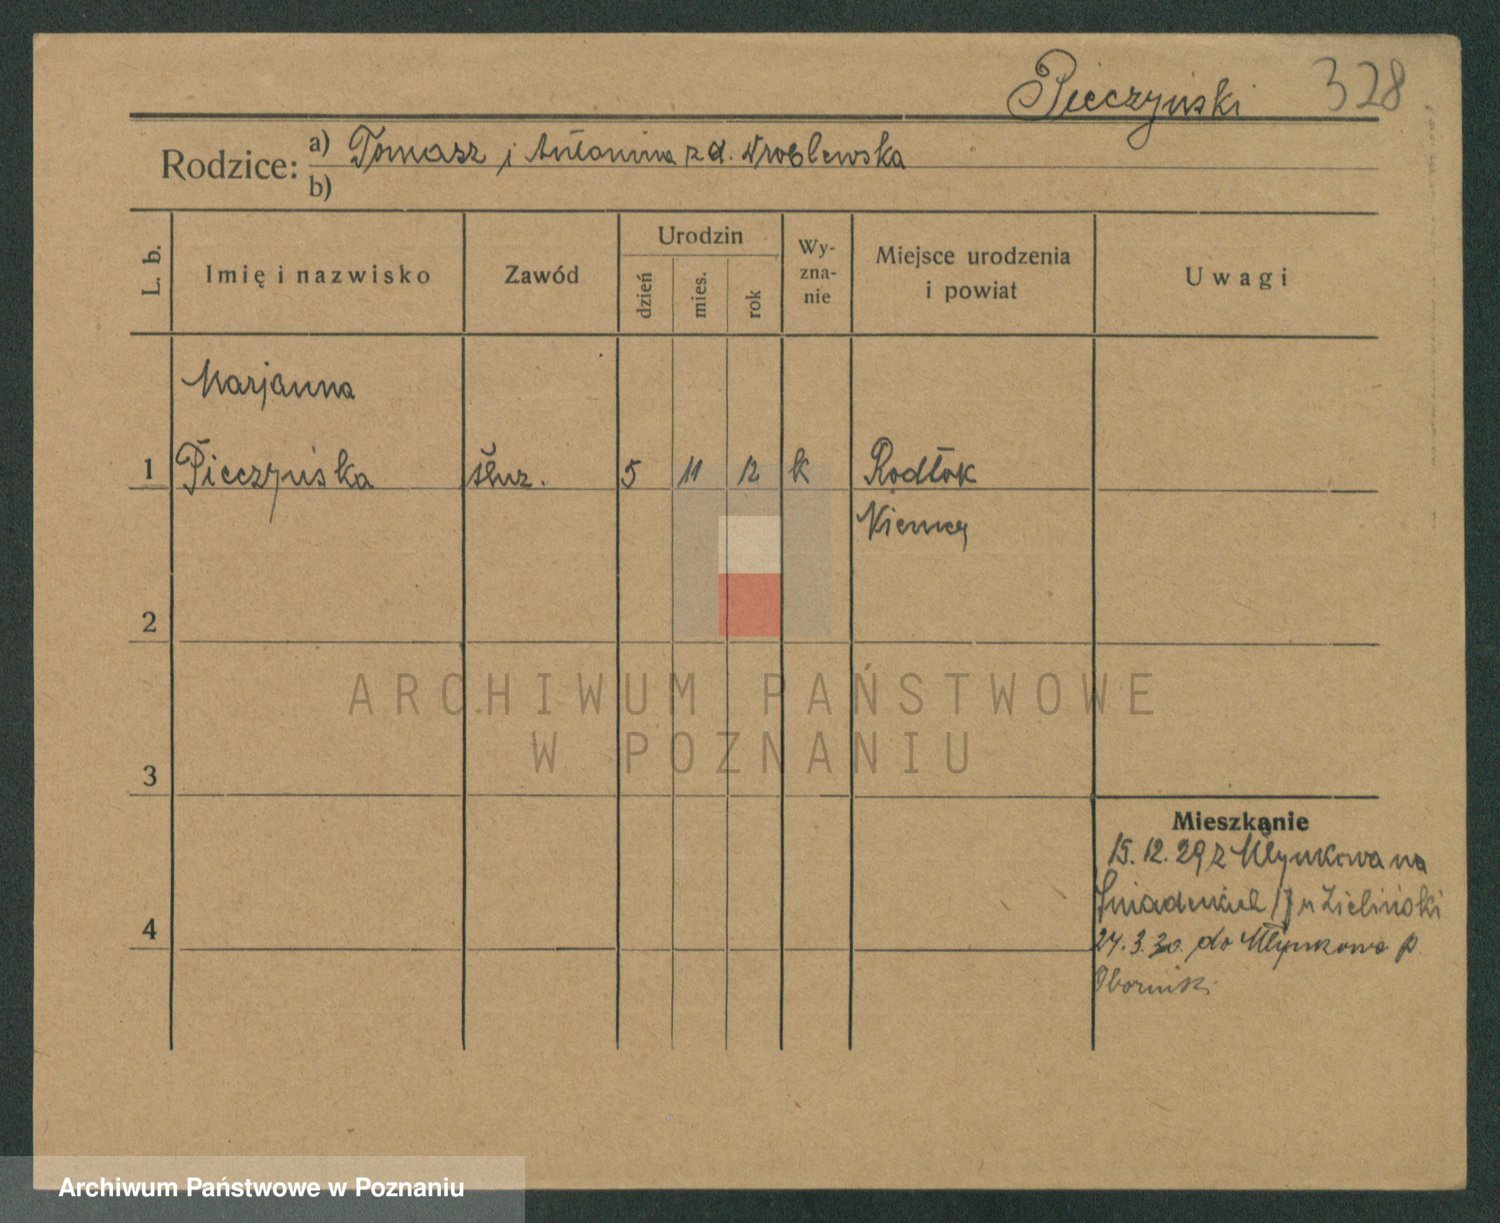 Pieczyński 328
Rodzice: a) Tomasz i Antonina z d. Wroblewska
b)
L. b. Imię i nazwisko Zawód Urodzin dzień mies. rok Wyznanie Miejsce urodzenia i powiat Uwagi
Marjanna
1 Pieczyńska służ. 5 11 12 k Rodtok
Niemcy
2
3
4
Mieszkanie
15. 12. 29 z Młynkowa na
17 Zieliński
24. 3. 30. do Młynkowa p.
Oborniki
ARCHIWUM PAŃSTWOWE
W POZNANIU
Archiwum Państwowe w Poznaniu